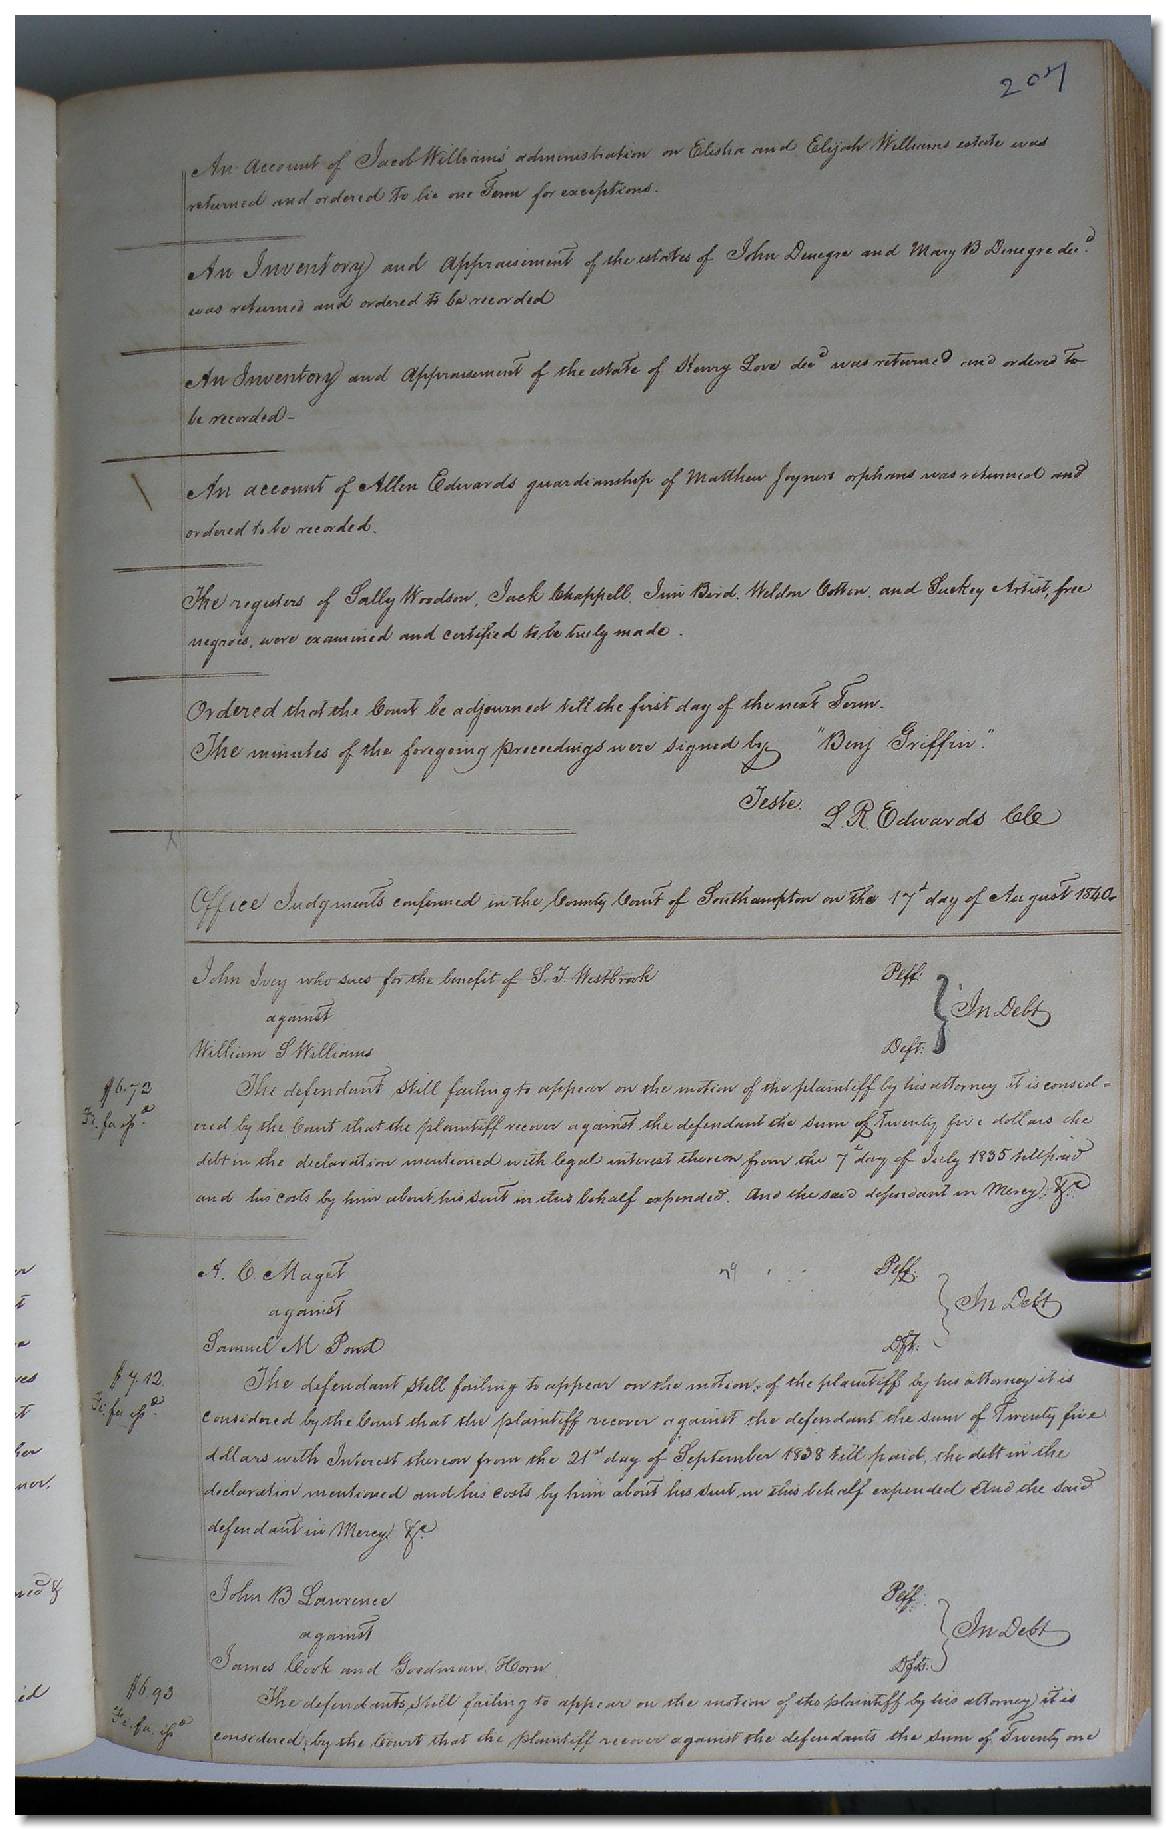 207
An account of Jacob Williams' administration on Elisha and Elijah Williams estate was
returned and ordered to lie one Term for exceptions.
An Inventory and appraisement of the estates of John Denegre and Mary B Denegre decd.
was returned and ordered to be recorded
An Inventory and appraisement of the estate of Henry Love decd was returned and ordered to
be recorded-
An account of Allen Edwards guardianship of Matthew Joyners orphans was returned and
ordered to be recorded.
The registers of Sally Woodson, Jack Chappell, Jim Bird, Weldon Cotten, and Suckey Artist, free
negroes, were examined and certified to be truly made.
Ordered that the Court be adjourned till the first day of the next Term.
The minutes of the foregoing proceedings were signed by "Benj Griffin."
Teste. L. R. Edwards CC
Office Judgments confirmed in the County Court of Southampton on the 17t day of August 1840.
John Ivey who sues for the benefit of S. T. Westbrook Plff.
against In Debt
William S Williams Deft.
$6.72 The defendant still failing to appear on the motion of the plaintiff by his attorney it is consid-
Fi. fa issd. ered by the Court that the plaintiff recover against the defendant the sum of Twenty five dollars the
debt in the declaration mentioned with legal interest thereon from the 7th day of July 1835 till paid
and his costs by him about his suit in this behalf expended. And the said defendant in Mercy, &c.
A. C. Maget Plff.
against In Debt
Samuel M Pond Dft.
$7.12. The defendant still failing to appear on the motion, of the plaintiff by his attorney it is
Fi. fa issd. considered by the Court that the plaintiff recover against the defendant the sum of Twenty five
dollars with Interest thereon from the 21st day of September 1838 till paid, the debt in the
declaration mentioned and his costs by him about his suit in this behalf expended And the said
defendant in Mercy. &c.
John B Lawrence Plff.
against In Debt
James Cook and Goodman Horn Dfts.
$6.93 The defendants still failing to appear on the motion of the plaintiff by his attorney it is
Fi. fa. issd considered by the Court that the plaintiff recover against the defendants the sum of Twenty one